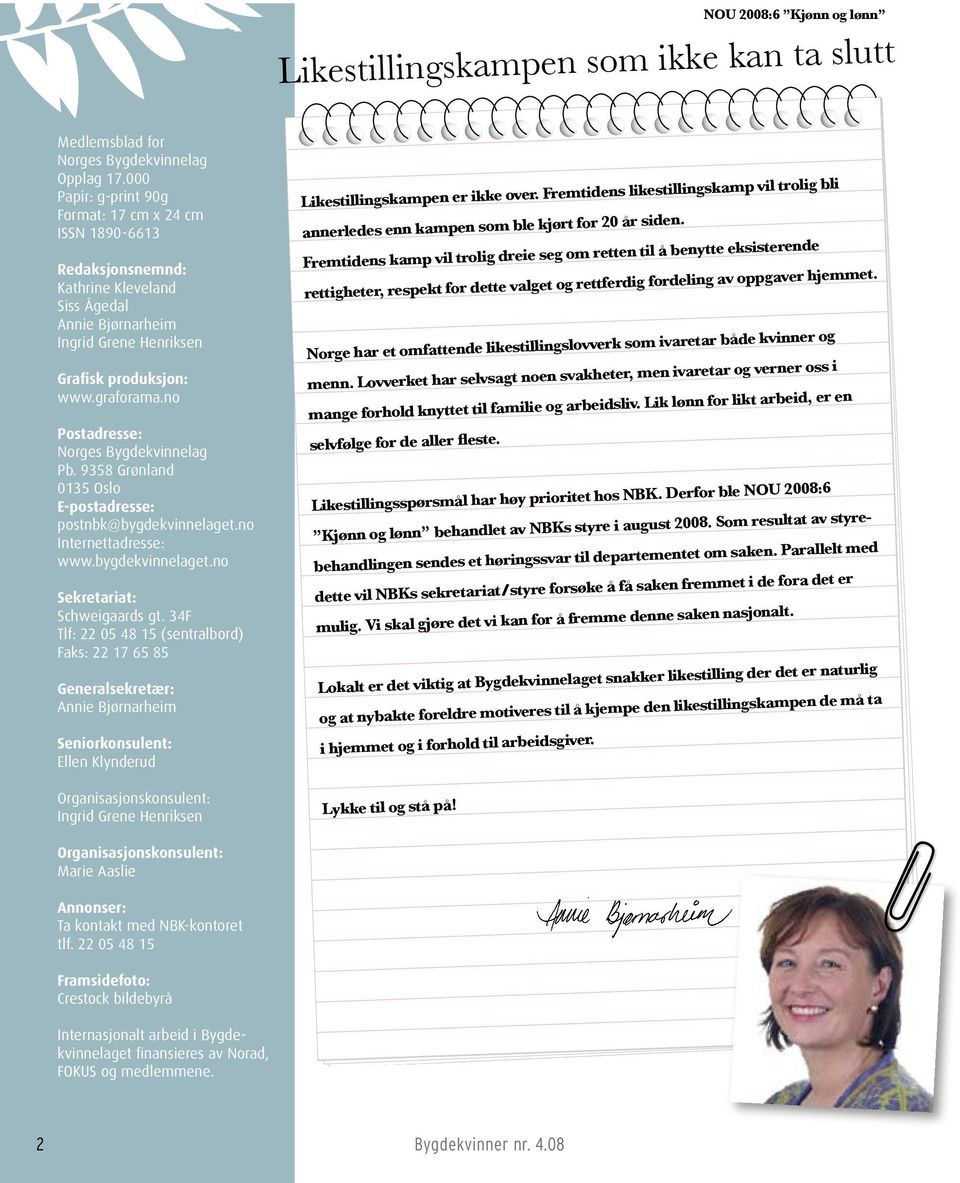 NOU 2008:6 ”Kjønn og lønn”
Likestillingskampen som ikke kan ta slutt
Medlemsblad for
Norges Bygdekvinnelag
Opplag 17.000
Papir: g-print 90g
Format: 17 cm x 24 cm
ISSN 1890-6613
Redaksjonsnemnd:
Kathrine Kleveland
Siss Ågedal
Annie Bjørnarheim
Ingrid Grene Henriksen
Grafisk produksjon:
www.graforama.no
Postadresse:
Norges Bygdekvinnelag
Pb. 9358 Grønland
0135 Oslo
E-postadresse:
postnbk@bygdekvinnelaget.no
Internettadresse:
www.bygdekvinnelaget.no
Sekretariat:
Schweigaards gt. 34F
Tlf: 22 05 48 15 (sentralbord)
Faks: 22 17 65 85
Generalsekretær:
Annie Bjørnarheim
Seniorkonsulent:
Ellen Klynderud
Organisasjonskonsulent:
Ingrid Grene Henriksen
Organisasjonskonsulent:
Marie Aaslie
Annonser:
Ta kontakt med NBK-kontoret
tlf. 22 05 48 15
Framsidefoto:
Crestock bildebyrå
Internasjonalt arbeid i Bygde-
kvinnelaget finansieres av Norad,
FOKUS og medlemmene.
Likestillingskampen er ikke over. Fremtidens likestillingskamp vil trolig bli
annerledes enn kampen som ble kjørt for 20 år siden.
Fremtidens kamp vil trolig dreie seg om retten til å benytte eksisterende
rettigheter, respekt for dette valget og rettferdig fordeling av oppgaver hjemmet.
Norge har et omfattende likestillingslovverk som ivaretar både kvinner og
menn. Lovverket har selvsagt noen svakheter, men ivaretar og verner oss i
mange forhold knyttet til familie og arbeidsliv. Lik lønn for likt arbeid, er en
selvfølge for de aller fleste.
Likestillingsspørsmål har høy prioritet hos NBK. Derfor ble NOU 2008:6
”Kjønn og lønn” behandlet av NBKs styre i august 2008. Som resultat av styre-
behandlingen sendes et høringssvar til departementet om saken. Parallelt med
dette vil NBKs sekretariat/styre forsøke å få saken fremmet i de fora det er
mulig. Vi skal gjøre det vi kan for å fremme denne saken nasjonalt.
Lokalt er det viktig at Bygdekvinnelaget snakker likestilling der det er naturlig
og at nybakte foreldre motiveres til å kjempe den likestillingskampen de må ta
i hjemmet og i forhold til arbeidsgiver.
Lykke til og stå på!
Annie Bjørnarheim
2
Bygdekvinner nr. 4.08